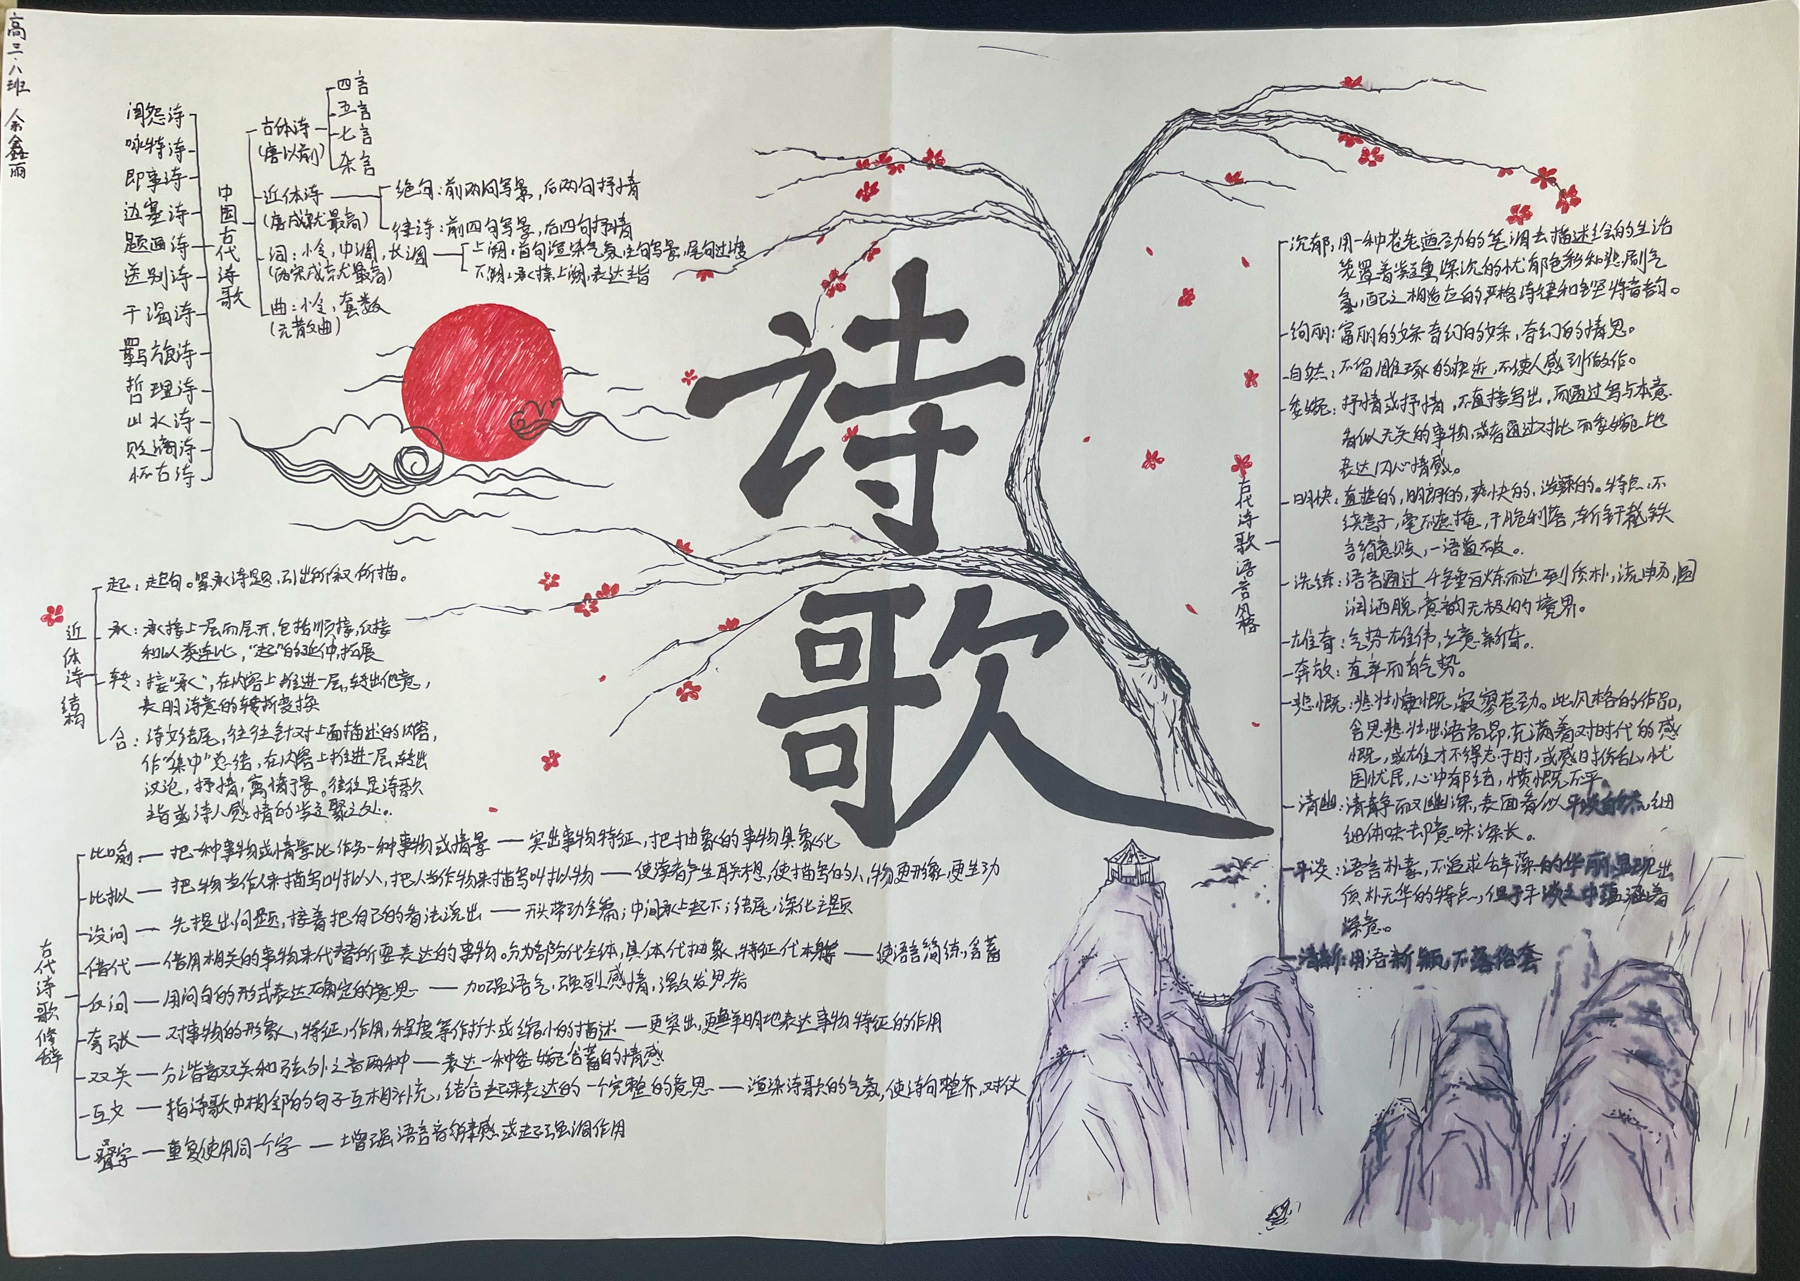 高三.八班 余鑫丽
闺怨诗
咏物诗
即事诗
边塞诗
题画诗
送别诗
干谒诗
羁旅诗
哲理诗
山水诗
怀古诗
中国古代诗歌
古体诗
(唐以前)
四言
五言
七言
杂言
近体诗
(唐成就最高)
绝句:前两句写景,后两句抒情
律诗:前四句写景,后四句抒情
词:小令,中调,长调
(两宋成就最高)
上阕:首句渲染气氛,主句写景,尾句过渡
下阕:承接上阕,表达主旨
曲:小令,套数
(元散曲)
诗歌
近体诗结构
起:起句。紧承诗题,引出所叙所描。
承:承接上一层而展开,包括顺接,反接
和以类连比,“起”的延伸,拓展
转:接“承”,在内容上推进一层,转出他意,
表明诗意的转折变换
合:诗文结尾,往往针对上面描述的内容,
作“集中”总结,在内容上推进一层,转出
议论,抒情,寓情于景。往往是诗歌
主旨或诗人感情的凝聚之处。
古代诗歌修辞
比喻 — 把一种事物或情景比作另一种事物或情景 — 突出事物特征,把抽象的事物具象化
比拟 — 把物当作人来描写叫拟人,把人当作物来描写叫拟物 — 使读者产生联想,使描写的人,物更形象,更生动
设问 — 先提出问题,接着把自己的看法说出 — 开头带动全篇;中间承上起下;结尾,深化主题
借代 — 借用相关的事物来代替所要表达的事物。分为部分代全体,具体代抽象,特征代本体 — 使语言简练,含蓄
反问 — 用问句的形式表达不确定的意思 — 加强语气,强烈感情,激发思考
夸张 — 对事物的形象,特征,作用,程度等作扩大或缩小的描述 — 更突出,更鲜明地表达事物特征的作用
双关 — 分谐音双关和弦外之音两种 — 表达一种委婉含蓄的情感
互文 — 指诗歌中相邻的句子互相补充,结合起来表达的一个完整的意思 — 渲染诗歌的气氛,使诗句整齐,对仗
叠字 — 重复使用同一个字 — 增强语言音韵感或起强调作用
古代诗歌语言风格
沉郁:用一种苍老遒劲的笔调去描述
的生活
深沉的忧郁色彩和悲剧气
氛,配之相适应的严格诗律和铿锵音韵。
绚丽:富丽的文采奇幻的文采,奇幻的情思。
自然:不留雕琢的痕迹,不使人感到做作。
委婉:抒情或抒情,不直接写出,而通过写与本意
看似无关的事物,或者通过对比而委婉地
表达内心情感。
明快:直接的,明朗的,爽快的,泼辣的。特点,不
绕弯子,毫不遮掩,干脆利落,斩钉截铁
言简意赅,一语道破。
洗练:语言通过千锤百炼而达到质朴,流畅,圆
润洒脱,意韵无极的的境界。
雄奇:气势雄伟,立意新奇。
奔放:直率而有气势。
悲慨:悲壮慷慨,寂寥苍劲。此风格的作品,
含思悲壮出语高昂,充满着对时代的感
慨,或雄才不得志于时,或感时伤乱,忧
国忧民,心中郁结,愤慨不平
清幽:清静而又幽深,表面看似平淡自然,细
细体味却意味深长。
平淡:语言朴素,不追求辞藻的华丽,显现出
质朴无华的特点,但于平淡之中蕴涵着
深意。
清新:用语新颖,不落俗套